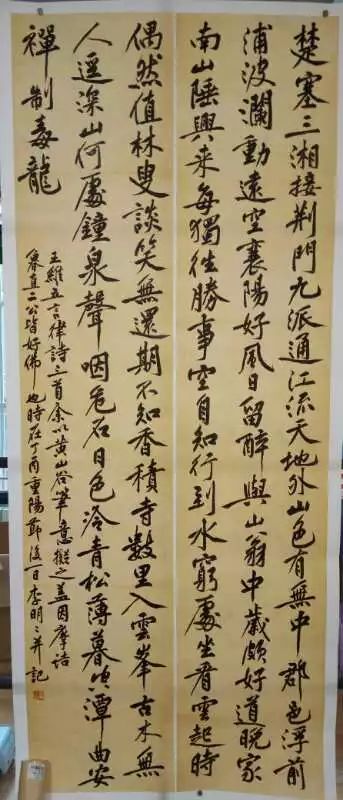 楚塞三湘接荆門九派通江流天地外山色有無中郡邑浮前
浦波瀾動遠空襄陽好風日留醉與山翁中歲頗好道晚家
南山陲興来每獨往勝事空自知行到水窮處坐看雲起時
偶然值林叟談笑無還期不知香積寺數里入雲峯古木無
人逕深山何處鐘泉聲咽危石日色冷青松薄暮空潭曲安
禪制毒龍
王維五言律詩三首余以黄山谷筆意擬之蓋因摩詰
魯直二公皆好佛也時在丁酉重陽節後一日李明〻并記